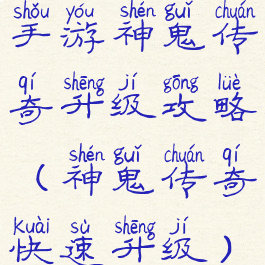 shǒu yóu shén guǐ chuán
手游神鬼传
qí shēng jí gōng lüè
奇升级攻略
shén guǐ chuán qí
（神鬼传奇
kuài sù shēng jí
快速升级）